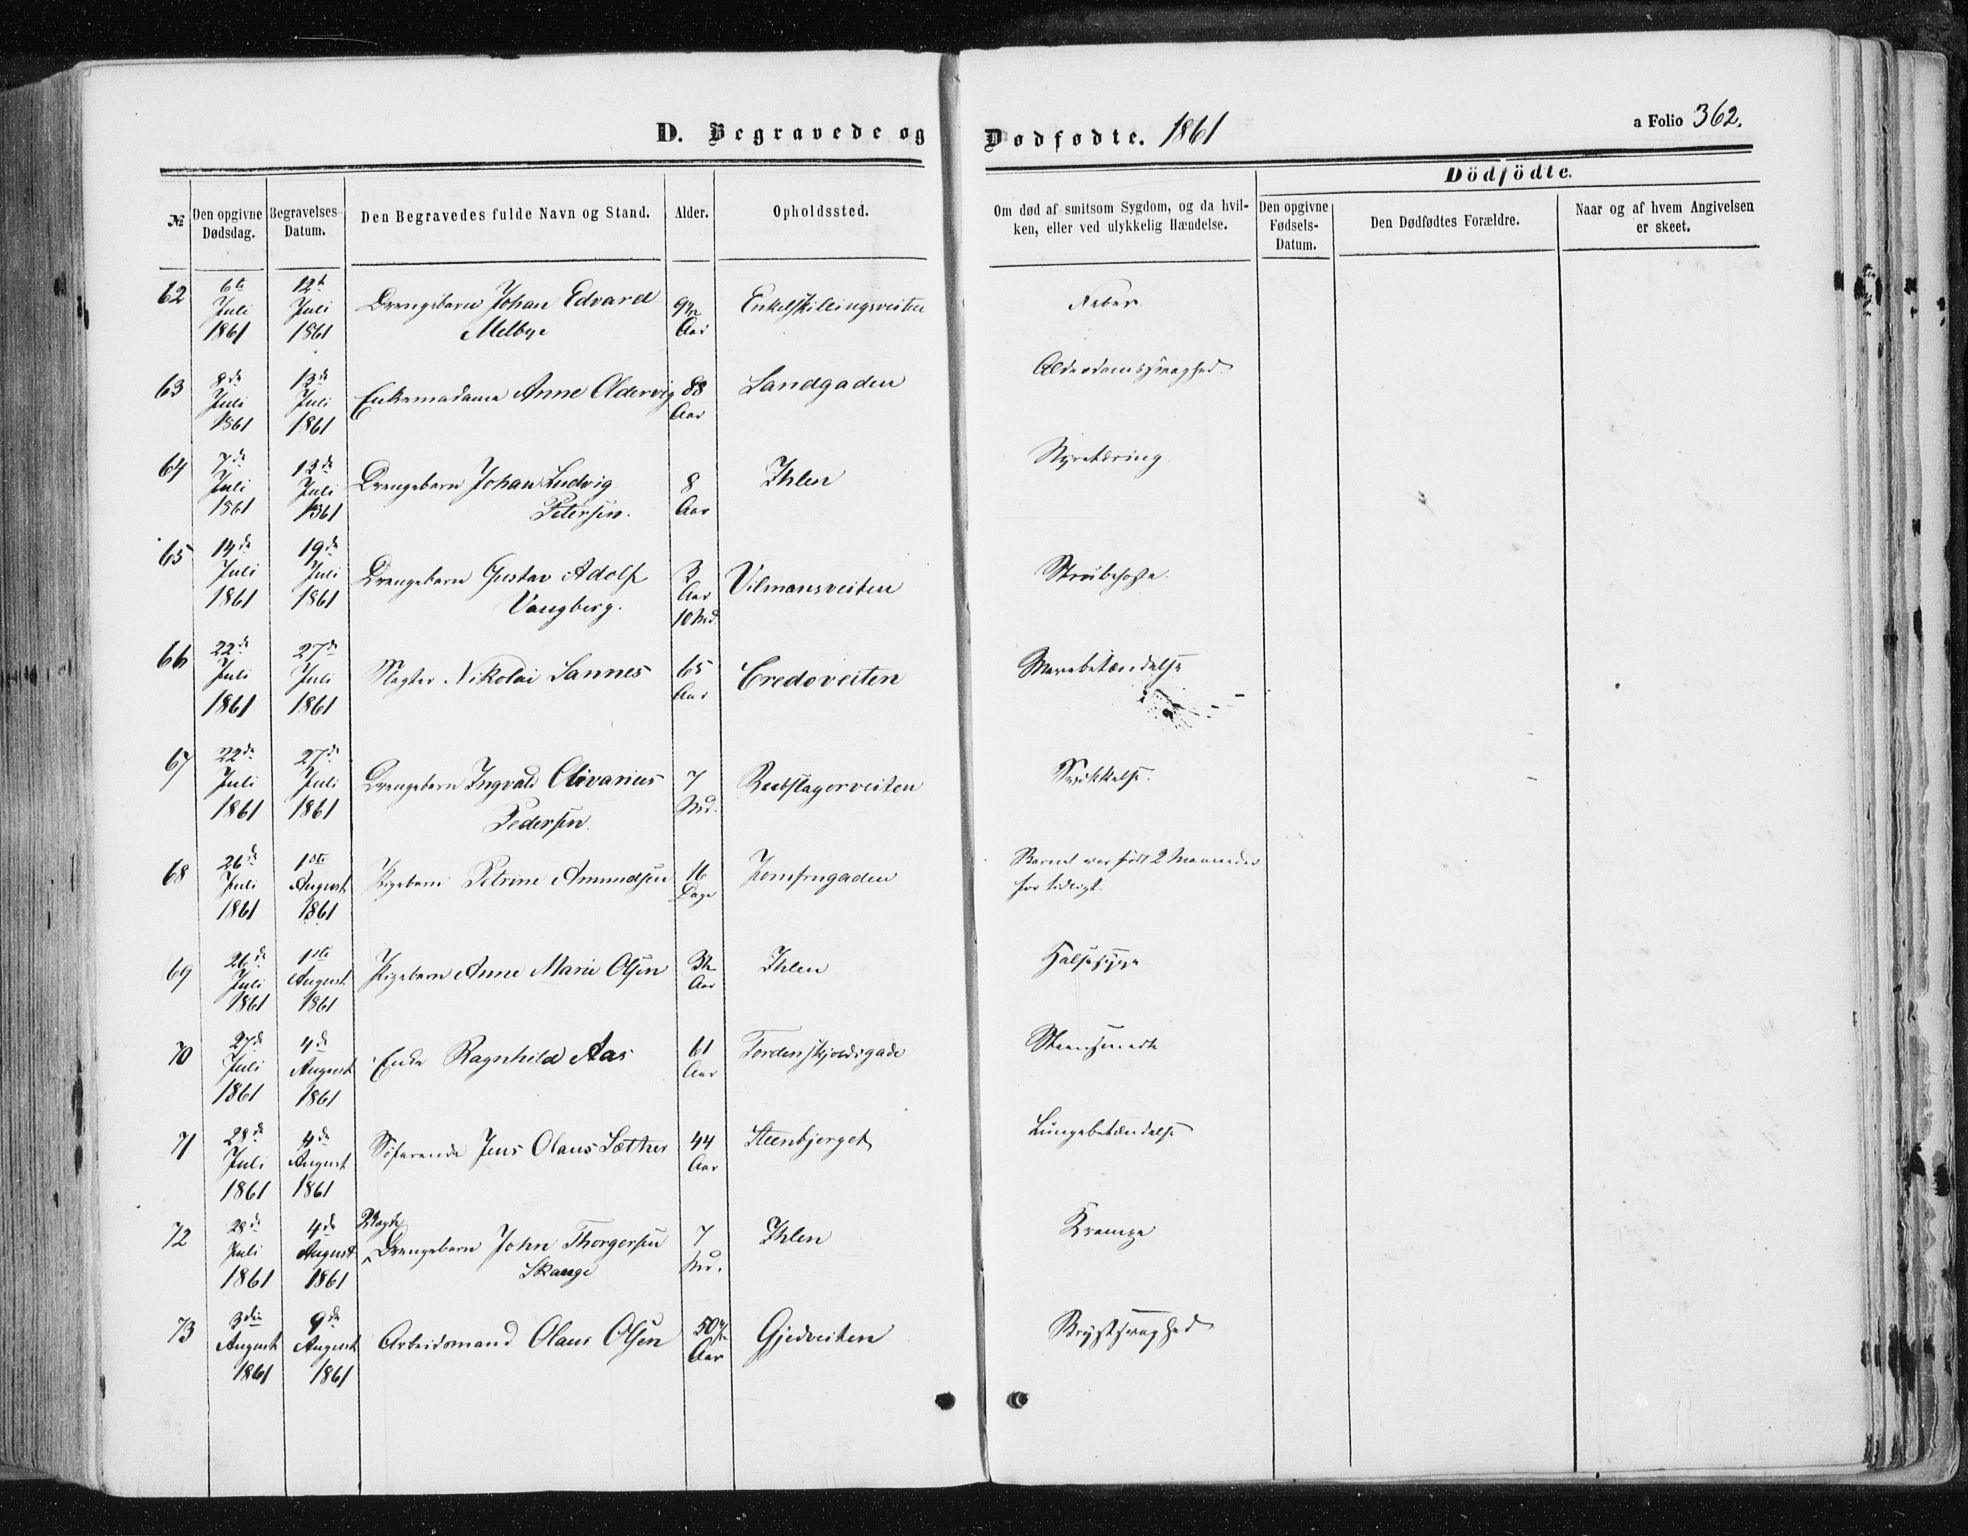 D. Begravede og Dødfødte. 1861
a Folio 362.
Dödfödte.
№
Den opgivne Dødsdag.
Begravelses Datum.
Den Begravedes fulde Navn og Stand.
Alder.
Opholdssted.
Om død af smitsom Sygdom, og da hvil-
ken, eller ved ulykkelig Hændelse.
Den opgivne Fødsels-Datum.
Den Dødfødtes Forældre.
Naar og af hvem Angivelsen
er skeet.
62 6te Juli 1861 12te Juli 1861 Drengebarn Johan Edvard Melbye Aar Enkelskillingsveiten Feber
63 8de Juli 1861 13de Juli 1861 Enkemadame Anne Oldervig 88 Aar Sandgaden Alderdomssvaghed
64 7de Juli 1861 13de Juli 1861 Drengebarn Johan Ludvig Petersen. 8 Aar Ihlen Nyretæring
65 14de Juli 1861 19de Juli 1861 Drengebarn Gustav Adolf Vangberg. 3 Aar 10 Md. Vilmansveiten Strubehoste.
66 22de Juli 1861 27de Juli 1861 Slagter Nikolai Sannes 65 Aar Credoveiten Mavebetændelse
67 22de Juli 1861 27de Juli 1861 Drengebarn Ingvald Olivarius Pedersen. 7 Md. Reebslagerveiten Svækkelse.
68 26de Juli 1861 1ste August 1861 Pigebarn Petrine Amundsen 16 Dage Jomfrugaden Barnet var født 2 Maaneder for tidligt.
69 26de Juli 1861 1ste August 1861 Pigebarn Anne Marie Olsen Aar Ihlen Halssyge
70 27de Juli 1861 4de August 1861 Enke Ragnhild Aas 61 Aar Tordenskjoldsgade Steensmerte
71 28de Juli 1861 4de August 1861 Söfarende Jens Olaus Sæther 44 Aar Steenbjerget Lungebetændelse
72 28de Juli 1861 4de August 1861 Uægte Drengebarn John Thorgersen Skauge 7 Md. Ihlen Krampe
73 3die August 1861 9de August 1861 Arbeidsmand Olaus Olsen 50½ Aar Gjedveiten Brystsvaghed